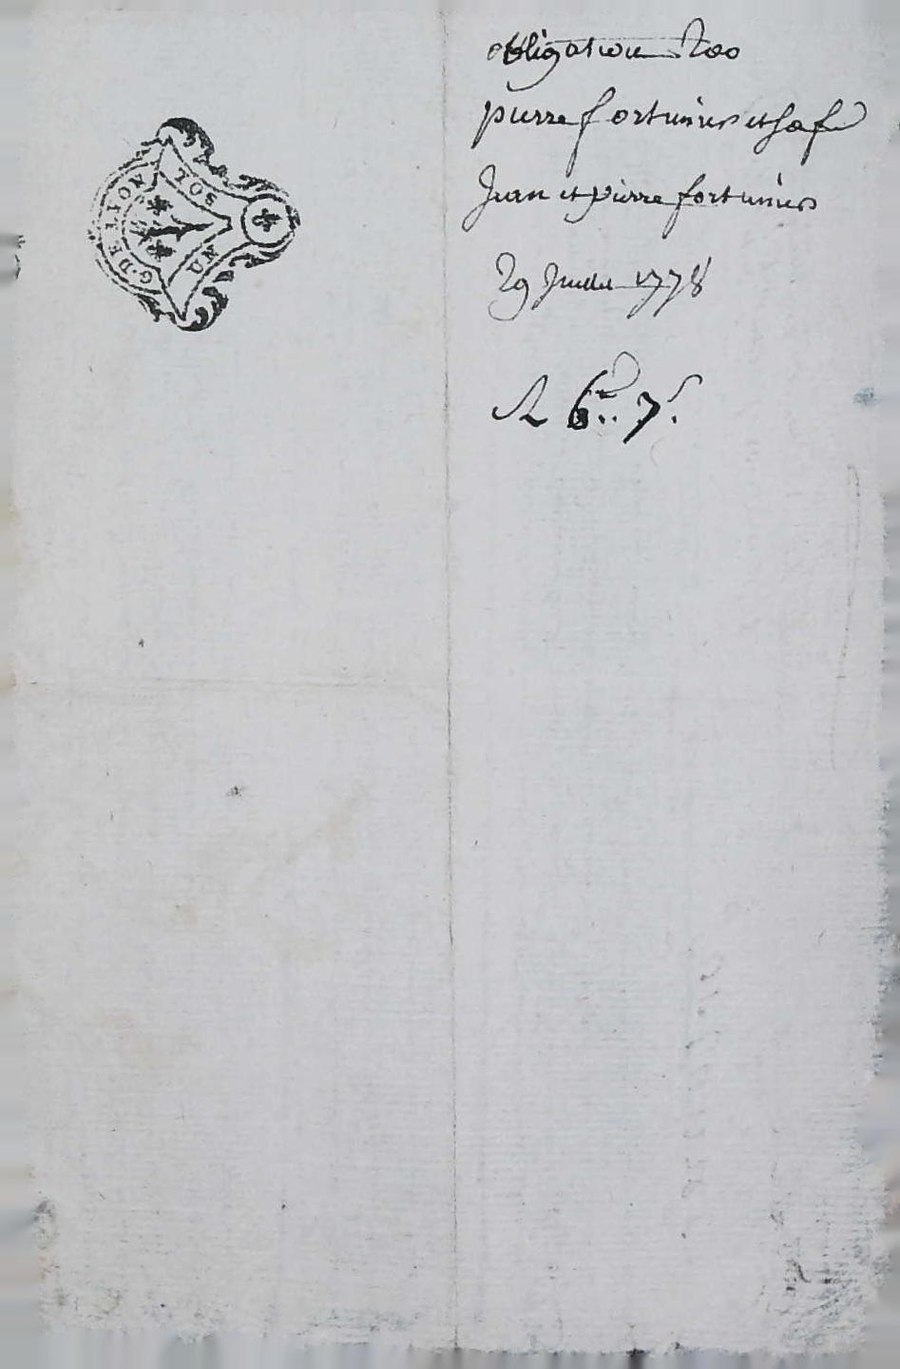 G. DE LYON
UN SOL
obligation 200
pierre fortunier et sa fe
Jean et pierre fortunier
29 Juillet 1778
R 6 7s